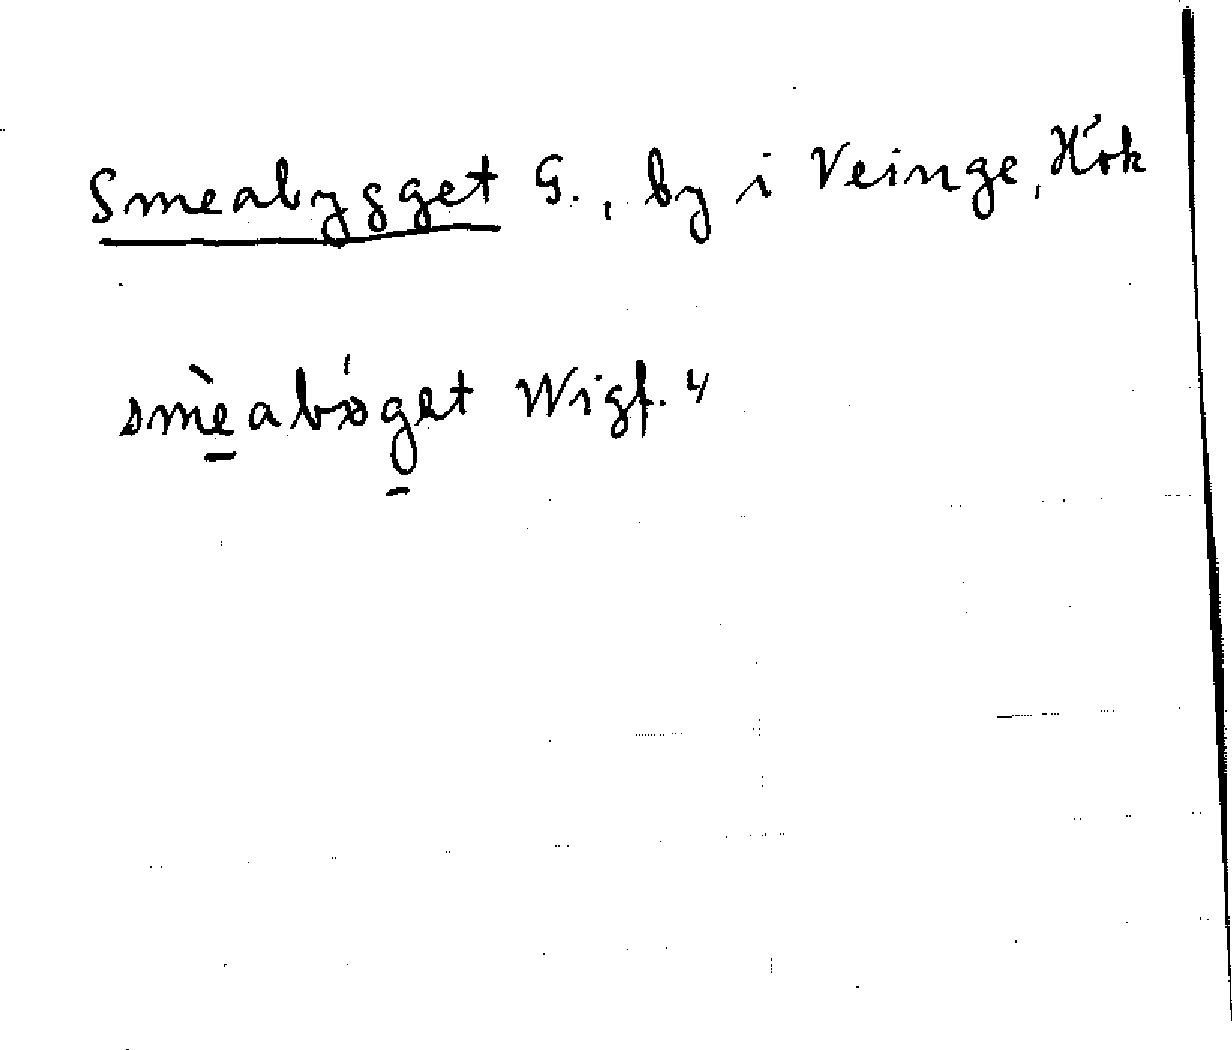 Smeabygget G., by i Veinge, Hök
smèabø'get Wigf. 4